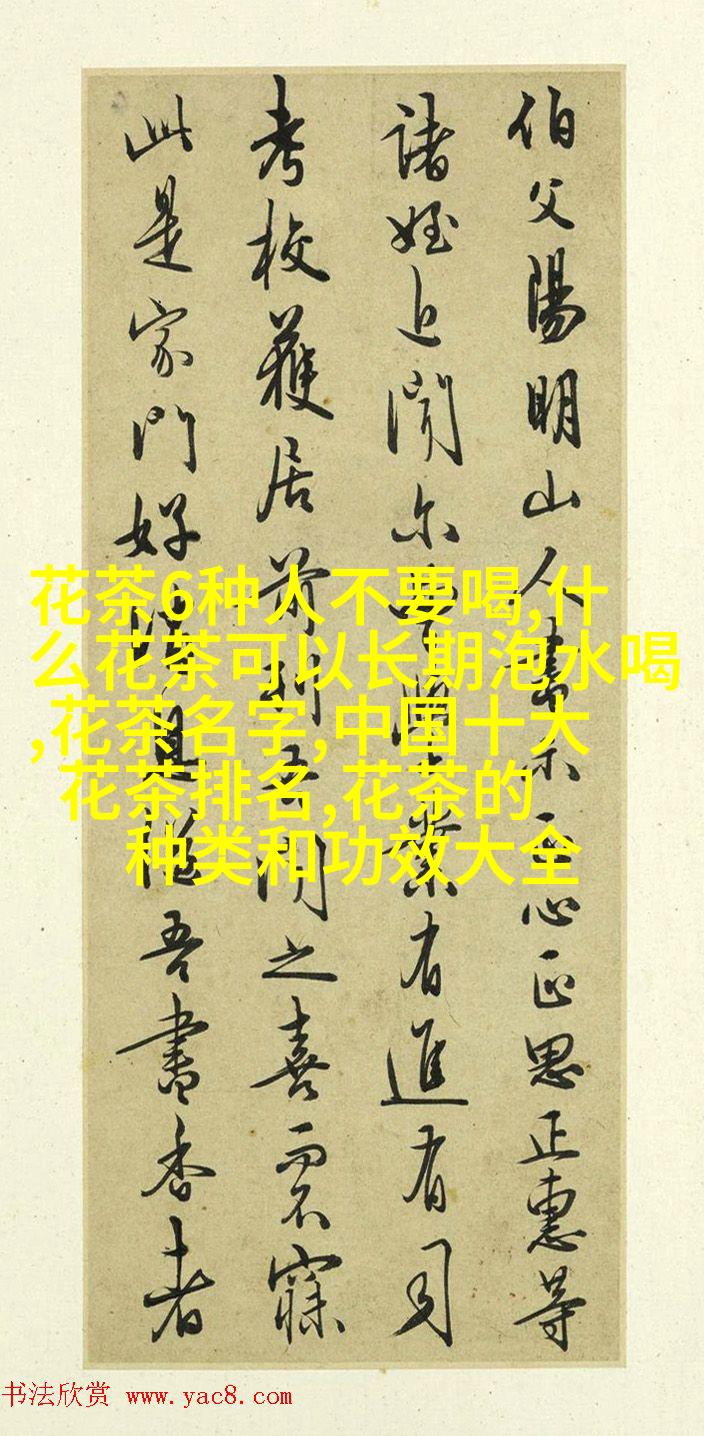 伯父陽明山人書示正心正思正惠等
諸姪近聞尔曹學業有進有司
考校獲居前列吾聞之喜而不寐
此是家門好消息繼吾書香者
花茶6种人不要喝,什
么花茶可以长期泡水喝
,花茶名字,中国十大
花茶排名,花茶的
种类和功效大全
书法欣赏 www.yac8.com